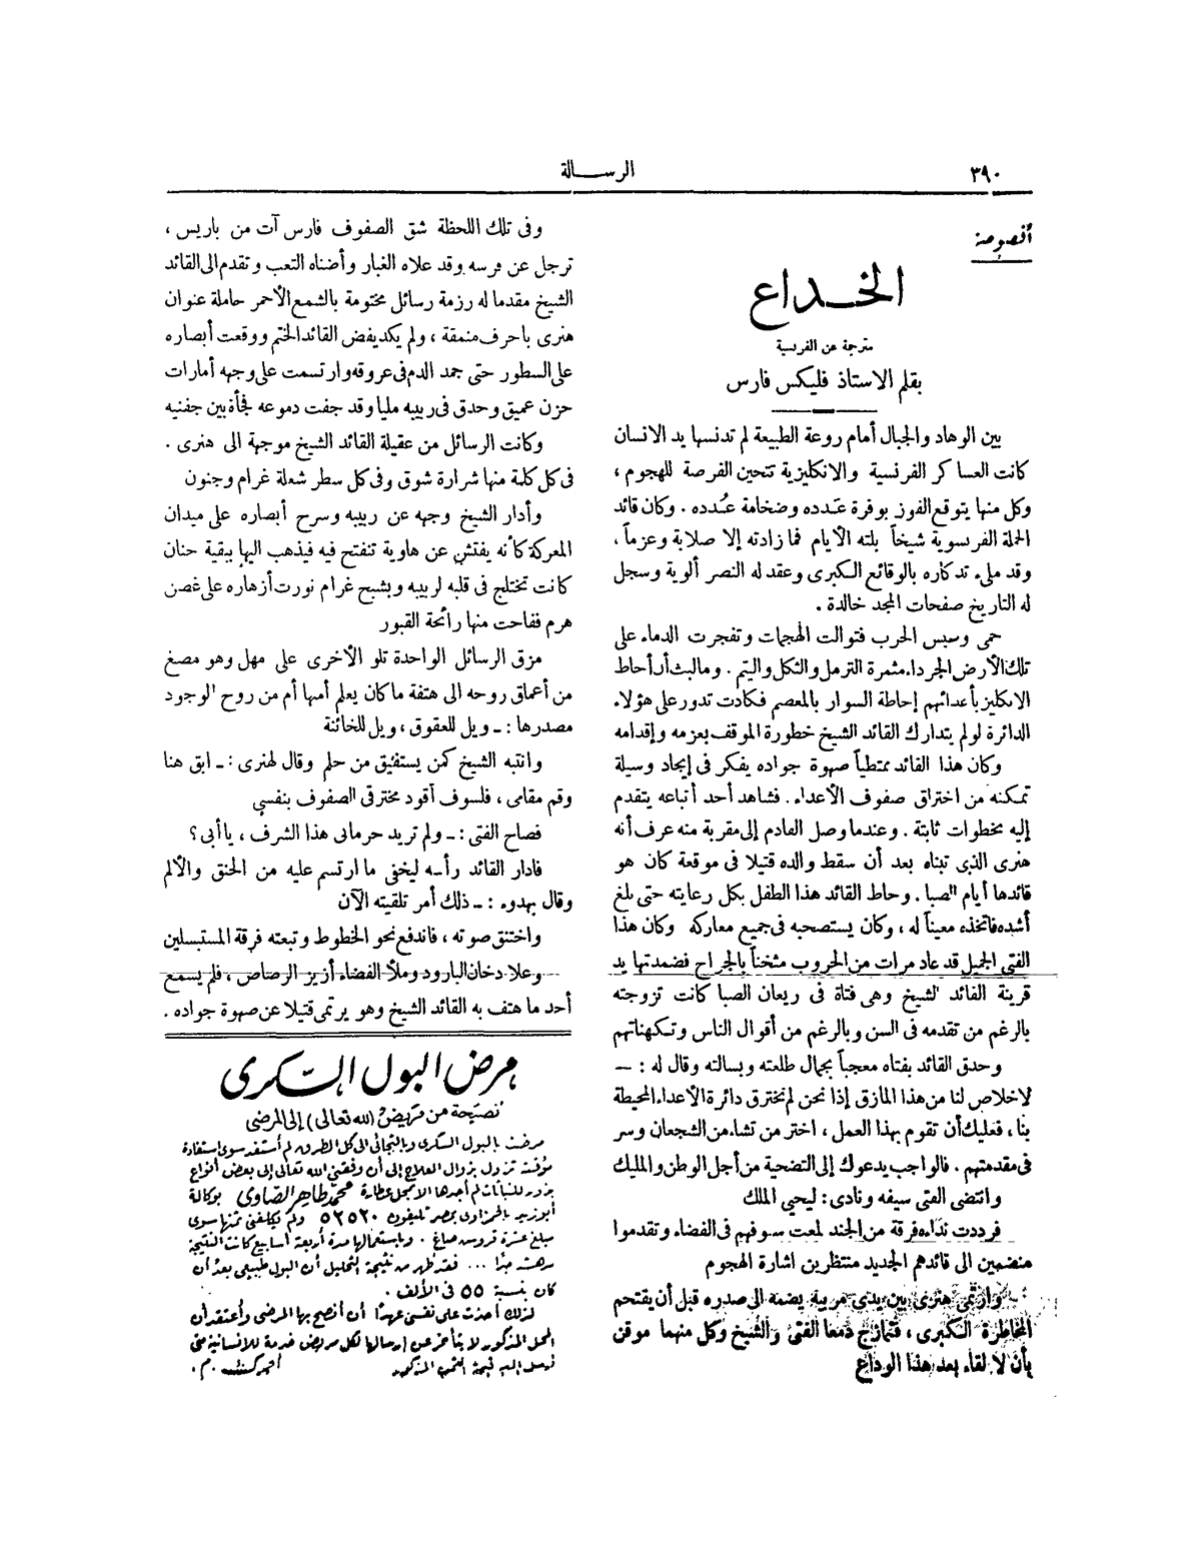 ٣٩٠
الرســـالة
أقصوصة
الخـــداع
مترجمة عن الفرنسية
بقلم الاستاذ فليكس فارس
بين الوهاد والجبال أمام روعة الطبيعة لم تدنسها يد الانسان
كانت العساكر الفرنسية والانكليزية تتحين الفرصة للهجوم ،
وكل منها يتوقع الفوز بوفرة عَدده وضخامة عُدده . وكان قائد
الحملة الفرنسوية شيخاً بلته الأيام فما زادته إلا صلابة وعزماً ،
وقد ملىء تذكاره بالوقائع الكبرى وعقد له النصر ألوية وسجل
له التاريخ صفحات المجد خالدة .
حمى وسيس الحرب فتوالت الهجمات وتفجرت الدماء على
تلك الأرض الجرداء مثمرة الترمل والثكل واليتم . وما لبث أن أحاط
الانكليز بأعدائهم إحاطة السوار بالمعصم فكادت تدور على هؤلاء
الدائرة لولم يتدارك القائد الشيخ خطورة الموقف بعزمه وإقدامه
وكان هذا القائد ممتطياً صهوة جواده يفكر فى إيجاد وسيلة
تمكنه من اختراق صفوف الأعداء . فشاهد أحد أتباعه يتقدم
إليه بخطوات ثابتة . وعندما وصل القادم إلى مقربة منه عرف أنه
هنرى الذى تبناه بعد أن سقط والده قتيلا فى موقعة كان هو
قائدها أيام الصبا . وحاط القائد هذا الطفل بكل رعايته حتى بلغ
أشده فاتخذه معيناً له ، وكان يستصحبه فى جميع معاركه وكان هذا
الفتى الجميل قد عاد مرات من الحروب مثخناً بالجراح فضمدتها يد
قرينة القائد الشيخ وهى فتاة فى ريعان الصبا كانت تزوجته
بالرغم من تقدمه فى السن وبالرغم من أقوال الناس وتكهناتهم
وحدق القائد بفتاه معجباً بجمال طلعته وبسالته وقال له : ــ
لاخلاص لنا من هذا المازق إذا نحن لم نخترق دائرة الأعداء المحيطة
بنا ، فعليك أن تقوم بهذا العمل ، اختر من تشاء من الشجعان وسر
فى مقدمتهم . فالواجب يدعوك إلى التضحية من أجل الوطن والمليك
وانتضى الفتى سيفه ونادى : ليحيى الملك
فرددت نداءه فرقة من الجند لمعت سيوفهم فى الفضاء وتقدموا
منضمين الى قائدهم الجديد منتظرين اشارة الهجوم
وارتمى هنرى بين يدى مربيه يضمه الى صدره قبل أن يقتحم
المخاطرة الكبرى ، فتمازج دمعا الفتى والشيخ وكل منهما موقن
بأن لا لقاء بعد هذا الوداع
وفى تلك اللحظة شق الصفوف فارس آت من باريس ،
ترجل عن فرسه وقد علاه الغبار وأضناه التعب وتقدم الى القائد
الشيخ مقدما له رزمة رسائل مختومة بالشمع الأحمر حاملة عنوان
هنرى باحرف منمقة ، ولم يكد يفض القائد الختم ووقعت أبصاره
على السطور حتى جمد الدم فى عروقه وارتسمت على وجهه أمارات
حزن عميق وحدق فى ربيبه مليا وقد جفت دموعه فجأة بين جفنيه
وكانت الرسائل من عقيلة القائد الشيخ موجهة الى هنرى .
فى كل كلمة منها شرارة شوق وفى كل سطر شعلة غرام وجنون
وأدار الشيخ وجهه عن ربيبه وسرح أبصاره على ميدان
المعركة كأنه يفتش عن هاوية تنفتح فيه فيذهب اليها ببقية حنان
كانت تختلج فى قلبه لربيبه وبشبح غرام نورت أزهاره على غصن
هرم ففاحت منها رائحة القبور
مزق الرسائل الواحدة تلو الأخرى على مهل وهو مصغ
من أعماق روحه الى هتفة ما كان يعلم أمنها أم من روح الوجود
مصدرها : ــ ويل للعقوق ، ويل للخائنة
وانتبه الشيخ كمن يستفيق من حلم وقال لهنرى : ــ ابق هنا
وقم مقامى ، فلسوف أقود مخترقى الصفوف بنفسى
فصاح الفتى : ــ ولم تريد حرمانى هذا الشرف ، يا أبى ؟
فادار القائد رأسه ليخفى ما ارتسم عليه من الحنق والألم
وقال بهدوء : ــ ذلك أمر تلقيته الآن
واختنق صوته ، فاندفع نحو الخطوط وتبعته فرقة المستبسلين
وعلا دخان البارود وملأ الفضاء أزيز الرصاص ، فلم يسمع
أحد ما هتف به القائد الشيخ وهو يرتمى قتيلا عن صهوة جواده .
مرض البول السكرى
نصيحة من مريض (لله تعالى) إلى المرضى
مرضت بالبول السكرى وبالتجائى الى كل الطرق لم أستفد سوى استفادة
مؤقتة تزول بزوال العلاج إلى أن وفقنى الله تعالى إلى بعض أنواع
بزور للنباتات لم أجدها إلا بمحل عطارة محمد طاهر الصاوى بوكالة
أبو زيد بالحمزاوى بمصر تليفون ٥٢٥٢٠ ولم يكلفنى ثمنها سوى
مبلغ عشرة قروش صاغ . وباستعمالها مدة أربعة أسابيع كانت النتيجة
مدهشة جدًا ... فقد ظهر من نتيجة التحليل أن البول طبيعى بعد أن
كان بنسبة ٥٥ فى الألف .
لذلك أخذت على نفسى عهدًا أن أنصح بها المرضى وأعتقد أن
المحل المذكور لا يتأخر عن إرسالها لكل مريض خدمة للإنسانية متى
الثمن المذكور